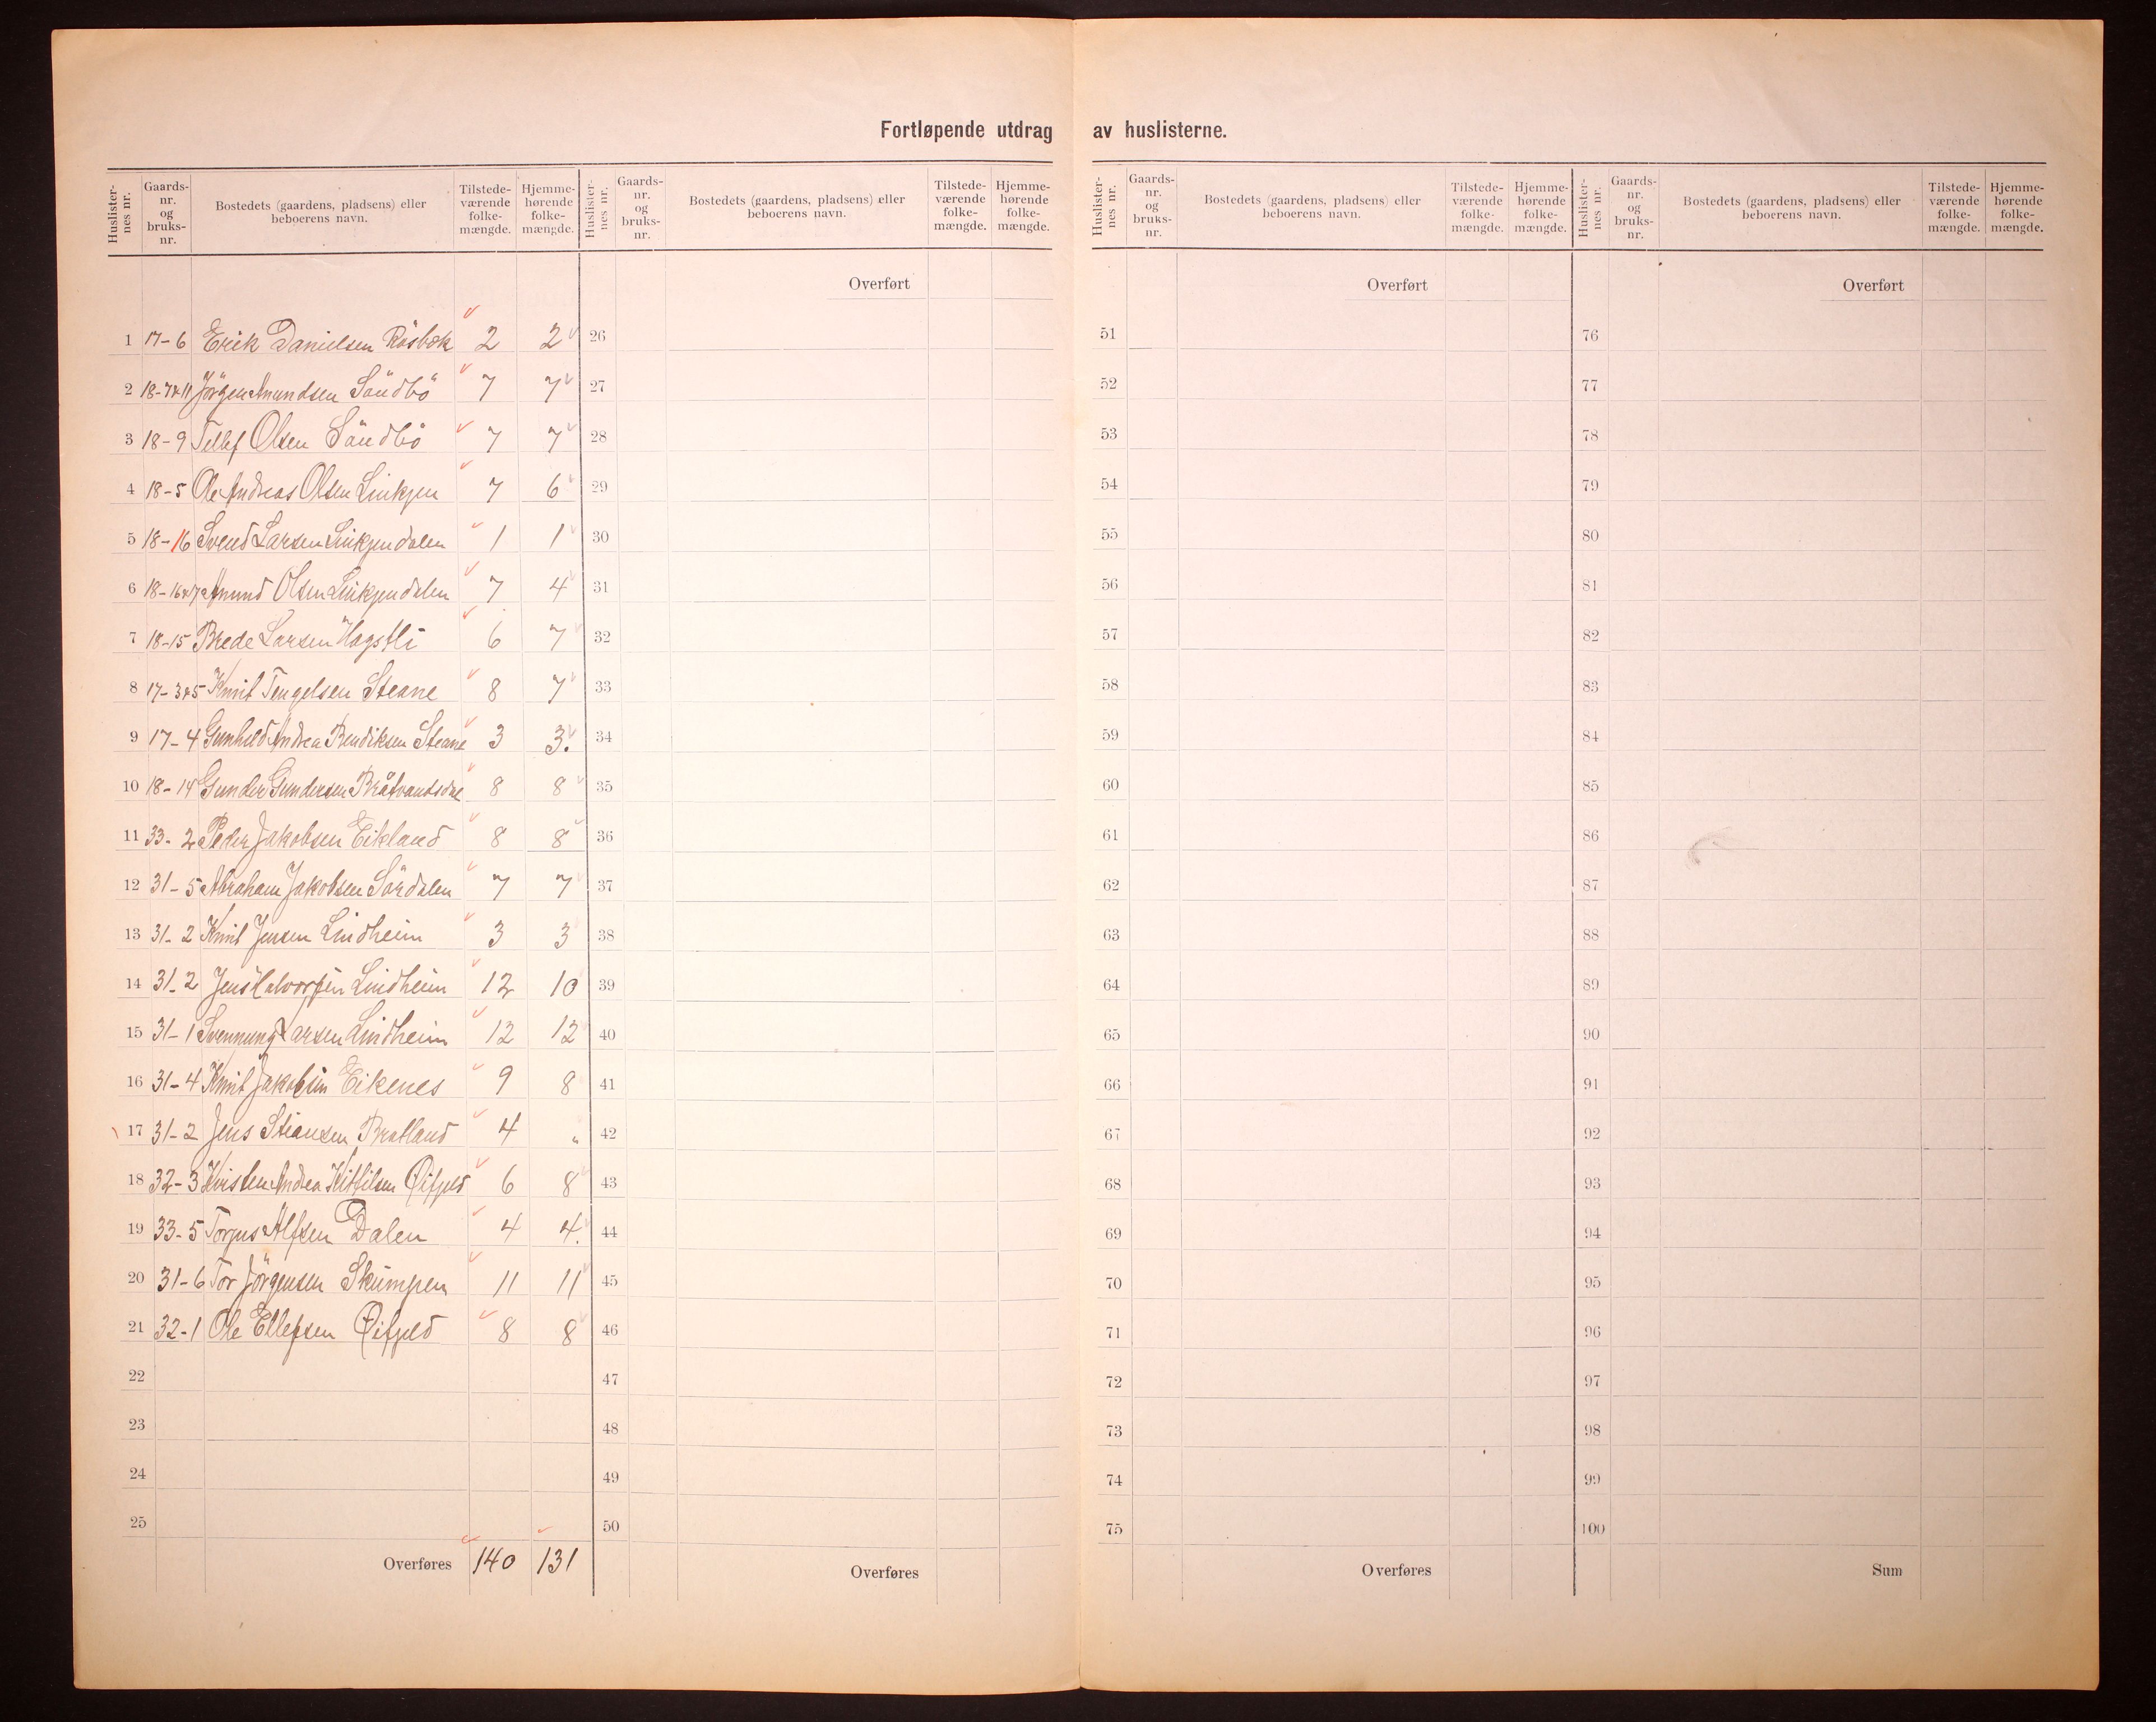 Fortløpende utdrag av huslisterne.
Huslister-nes nr. Gaards-nr. og bruks-nr. Bostedets (gaardens, pladsens) eller beboerens navn. Tilstede-værende folke-mængde. Hjemme-hørende folke-mængde.
1 17-6 Erik Danielsen Råsbæk 2 2
2 18-7&11 Jörgen Amundsen Sandbö 7 7
3 18-9 Tellef Olsen Sandbö 7 7
4 18-5 Ole Andreas Olsen Linkjen 7 6
5 18-16 Svend Larsen Linkjendalen 1 1
6 18-16&7 Amund Olsen Linkjendalen 7 4
7 18-15 Brede Larsen Hagstli 6 7
8 17-3&5 Knut Tengelsen Steane 8 7
9 17-4 Gunhild Andrea Bendiksen Steane 3 3.
10 18-14 Gunder Gundersen 8 8
11 33-2 Peder Jakobsen Eikland 8 8
12 31-5 Abraham Jakobsen Sördalen 7 7
13 31-2 Knut Jensen Lindheim 3 3
14 31-2 Jens Halvorsen Lindheim 12 10
15 31-1 Svennung Larsen Lindheim 12 12
16 31-4 Knut Jakobsen Eikenes 9 8
17 31-2 Jens Stiansen Bratland 4 "
18 32-3 Kristen Andrea Kittilsen Öifjeld 6 8
19 33-5 Torjus Alfsen Dalen 4 4.
20 31-6 Tor Jörgensen Skumpen 11 11
21 32-1 Ole Ellefsen Öifjeld 8 8
22
23
24
25
Overføres 140 131
Huslister-nes nr. Gaards-nr. og bruks-nr. Bostedets (gaardens, pladsens) eller beboerens navn. Tilstede-værende folke-mængde. Hjemme-hørende folke-mængde.
Overført
26
27
28
29
30
31
32
33
34
35
36
37
38
39
40
41
42
43
44
45
46
47
48
49
50
Overføres
Huslister-nes nr. Gaards-nr. og bruks-nr. Bostedets (gaardens, pladsens) eller beboerens navn. Tilstede-værende folke-mængde. Hjemme-hørende folke-mængde.
Overført
51
52
53
54
55
56
57
58
59
60
61
62
63
64
65
66
67
68
69
70
71
72
73
74
75
Overføres
Huslister-nes nr. Gaards-nr. og bruks-nr. Bostedets (gaardens, pladsens) eller beboerens navn. Tilstede-værende folke-mængde. Hjemme-hørende folke-mængde.
Overført
76
77
78
79
80
81
82
83
84
85
86
87
88
89
90
91
92
93
94
95
96
97
98
99
100
Sum